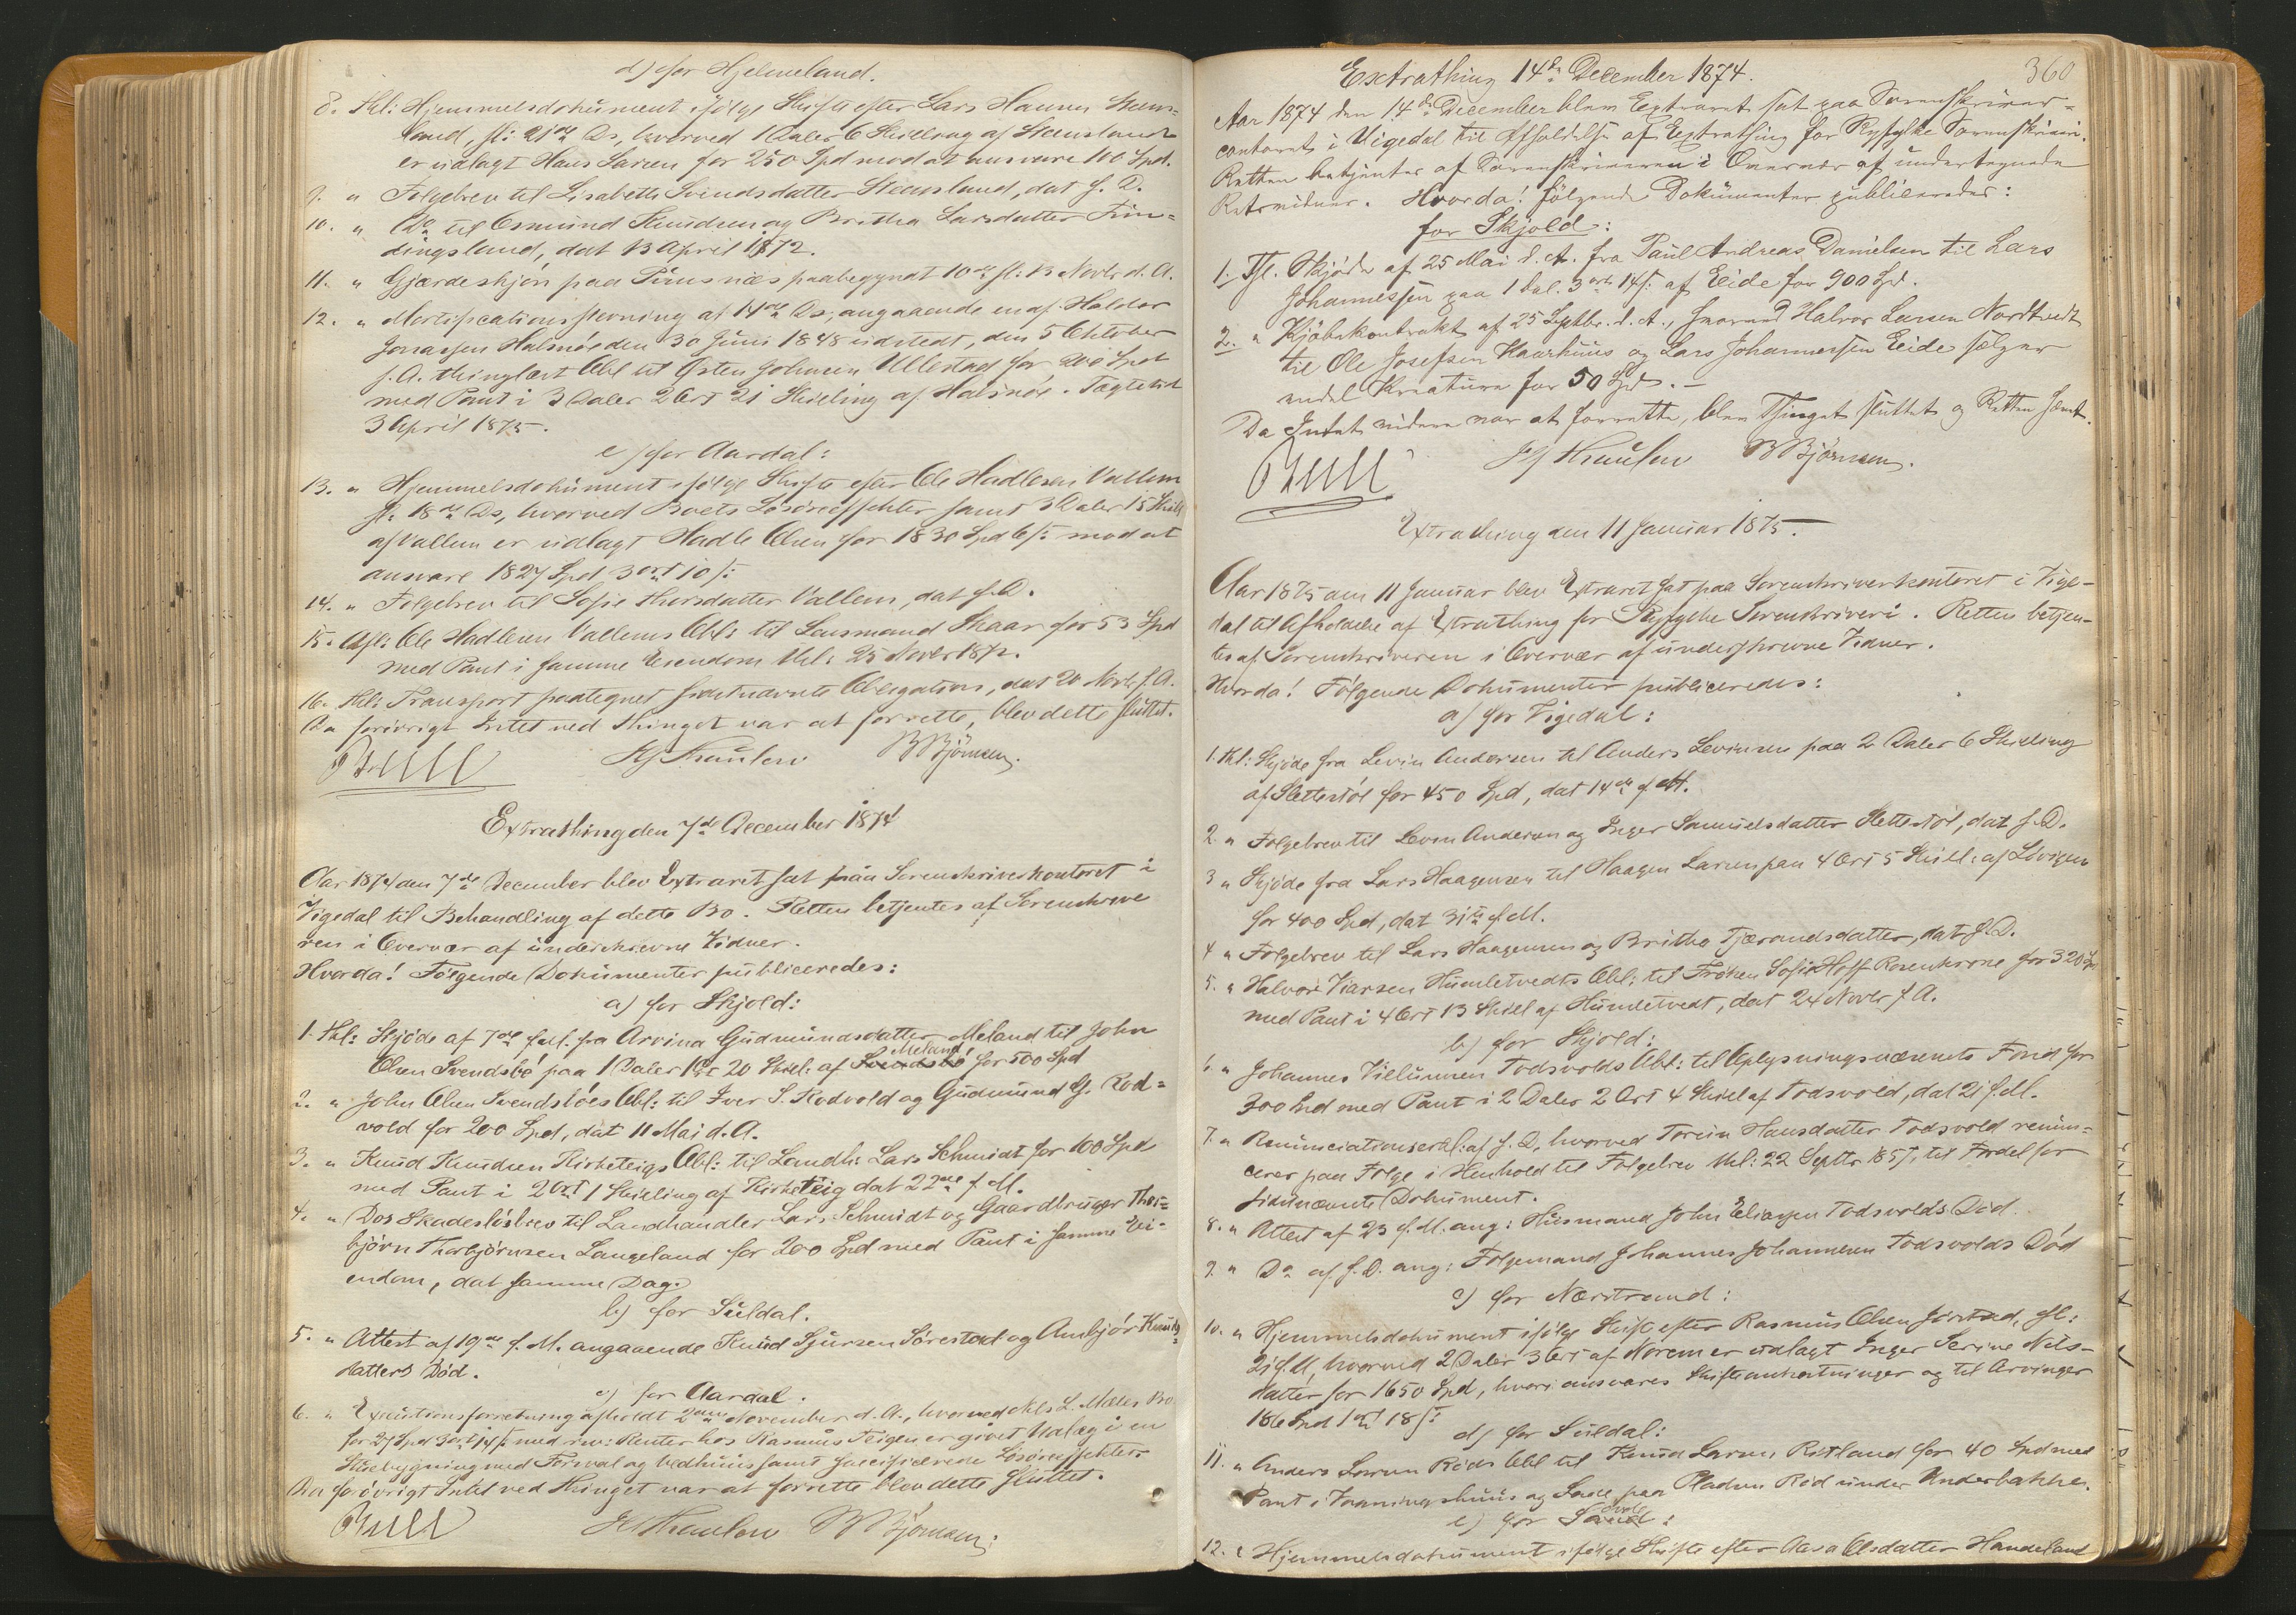 d) for Hjelmeland.
8. Thl: Hjemmelsdokument ifølge Skifte efter Lars Hansen
land, sl: 21de Ds, hvorved 1 Daler 6 Skilling af
er udlagt Hans Larsen for 250 Spd mod at ansvare 100 Spd.
9. " Følgebrev til Lisabeth Svendsdatter dat s. D.
10. " Do til Osmund Knudsen og Britha Larsdatter Fin=
dingsland, dat 13 April 1872.
11. " paa paabegyndt 10de sl: 13 Novbr d. A.
12. " Mortificationsstevning af 14de Ds, angaaende en af Haldor
Jonassen Halsnøe den 30 Juni 1848 udstedt, den 5 Oktober
s. A. thinglæst Obl til Østen Johnsen Ullestad for 200 Spd
med Pant i 3 Daler 2 Ort 21 Skilling af Halsnøe. Tægtetid
3 April 1875.
e) for Aardal:
13. " Hjemmelsdokument ifølge Skifte efter Ole Hadlesen Vallem
sl: 18de Ds, hvorved Boets Løsøreeffekter samt 3 Daler 15 Skill
af Vallem er udlagt Hadle Olsen for 1830 Spd 6 s: mod at
ansvare 1827 Spd 3 ort 10 s:
14. " Følgebrev til Sofie Thorsdatter Vallem, dat s. D.
15. Afl: Ole Hadlesen Vallems Obl: til Lensmand Skaar for 53 Spd
med Pant i samme Eiendom thl: 25 Novbr 1872.
16. Thl: Transport paategnet sidstnævnte Obligation, dat 20 Novb. s. A.
Da forøvrigt Intet ved Thinget var at forrette, blev dette sluttet.
Bull B Bjørnsen.
Extrathing den 7de December 1874
Aar 1874 den 7de December blev Extraret sat paa Sorenskriverkontoret i
Vigedal til Behandling af dette Bo. Retten betjentes af Sorenskrive
ren i Overvær af underskrevne Vidner.
Hvorda! Følgende Dokumenter publiceredes:
a) for Skjold:
1. Thl: Skjøde af 7de f. M. fra Arvina Gudmundsdatter Meland til John
Olsen Svendsbø paa 1 Daler 1 Ort 20 Skil: af Meland for 500 Spd
2. " John Olsen Svendsbøes Obl: til Iver S. Rodvold og Gudmund G. Rod=
vold for 200 Spd, dat 11 Mai d. A.
3. " Knud Knudsen Kirketeigs Obl: til Landh: Lars Schmidt for 100 Spd
med Pant i 2 Ort 1 Skilling af Kirketeig dat 22de f. M.
4. " Dos Skadesløsbrev til Landhandler Lars Schmidt og Gaardbruger Thor=
bjørn Thorbjørnsen Langeland for 200 Spd med Pant i samme Ei-
endom, dat samme Dag.
b) for Suldal.
5. " Attest af 19de f. M. angaaende Knud Sjursen Sørestad og Ambjør Knuds
datters Død.
c) for Aardal.
6. " Executionsforretning afholdt 2den November d. A., hvorved Nils L. Mæles Bo
for 27 Spd 3 ort 14 s med Renter hos Rasmus Teigen er givet Udlæg i en
Stuebygning med og vedhuus samt specificerede Løsøreeffekter.
Da forøvrigt Intet ved Thinget var at forrette blev dette sluttet.
Bull B Bjørnsen.
360
Extrathing 14de December 1874.
Aar 1874 den 14de December blev Extraret sat paa Sorenskriver=
contoret i Vigedal til Afholdelse af Extrathing for Ryfylke Sorenskriveri.
Retten betjentes af Sorenskriveren i Overvær af undertegnede
Retsvidner. Hvorda! følgende Dokumenter publiceredes:
for Skjold:
1. Thl. Skjøde af 25 Mai d. A. fra Paul Andreas Danielsen til Lars
Johannessen paa 1 Dal. 3 ort 14 s: af Eide for 900 Spd.
2. " Kjøbekontrakt af 25 Septbr. d. A., hvorved Halvor Larsen Nordtvedt
til Ole Josefsen Kaarhuus og Lars Johannessen Eide sælger
endel Kreature for 50 Spd. -
Da Intet videre var at forrette, blev Thinget sluttet og Retten hævet.
Bull B Bjørnsen.
Extrathing den 11 Januar 1875.
Aar 1875 den 11 Januar blev Extraret sat paa Sorenskriverkontoret i Vige-
dal til Afholdelse af Extrathing for Ryfylke Sorenskriveri. Retten betjen-
tes af Sorenskriveren i Overvær af underskrevne Vidner.
Hvorda! Følgende Dokumenter publiceredes:
a) for Vigedal:
1. Thl: Skjøde fra Levin Andersen til Anders Levinsen paa 2 Daler 6 Skilling
af Slettestøl for 450 Spd, dat 14de f. M.
2. " Følgebrev til Levin Andersen og Inger Samuelsdatter Slettestøl, dat s. D.
3 " Skjøde fra Lars Haagensen til Haagen Larsen paa 4 Ort 5 Skill: af Løvigen
for 400 Spd, dat 31te f. M.
4 " Følgebrev til Lars Haagensen og Britha Tjærandsdatter, dat s. D.
5. " Halvor Humletvedts Obl: til Frøken Sofie Hoff Rosenkrone for 320 Spd
med Pant i 4 Ort 13 Skill af Humletvedt, dat 24 Novbr f. A.
b) for Skjold:
6. " Johannes Todsvolds Obl: til Oplysningsvæsenets Fond for
300 Spd med Pant i 2 Daler 2 Ort 4 Skill af Todsvold, dat 21 f. M.
7. " Renunciationserkl: af s. D, hvorved Hansdatter Todsvold renun=
cerer paa Følge i Henhold til Følgebrev thl: 22 Septbr 1857, til Fordel for
sidstnævnte Dokument.
8. " Attest af 23 f. M. ang: Husmand John Eliassen Todsvolds Død.
9. " Do af s. D. ang: Følgemand Johannes Johannesen Todsvolds Død
c) for Nærstrand:
10. " Hjemmelsdokument ifølge Skifte efter Rasmus Olsen sl:
21 f. M, hvorved 2 Daler 3 Ort af Norem er udlagt Inger Serine Nils-
datter for 1650 Spd, hvori ansvares Skifteomkostninger og til Arvinger
186 Spd 1 ort 18 s:
d) for Suldal:
11. " Anders Larsen Røds Obl til Knud Larsen Ritland for 40 Spd med
Pant i Vaaningshuus og Lade paa Pladsen Rød under Underbakke.
e) for Sand:
12. " Hjemmelsdokument ifølge Skifte efter Aasa Olsdatter Handeland